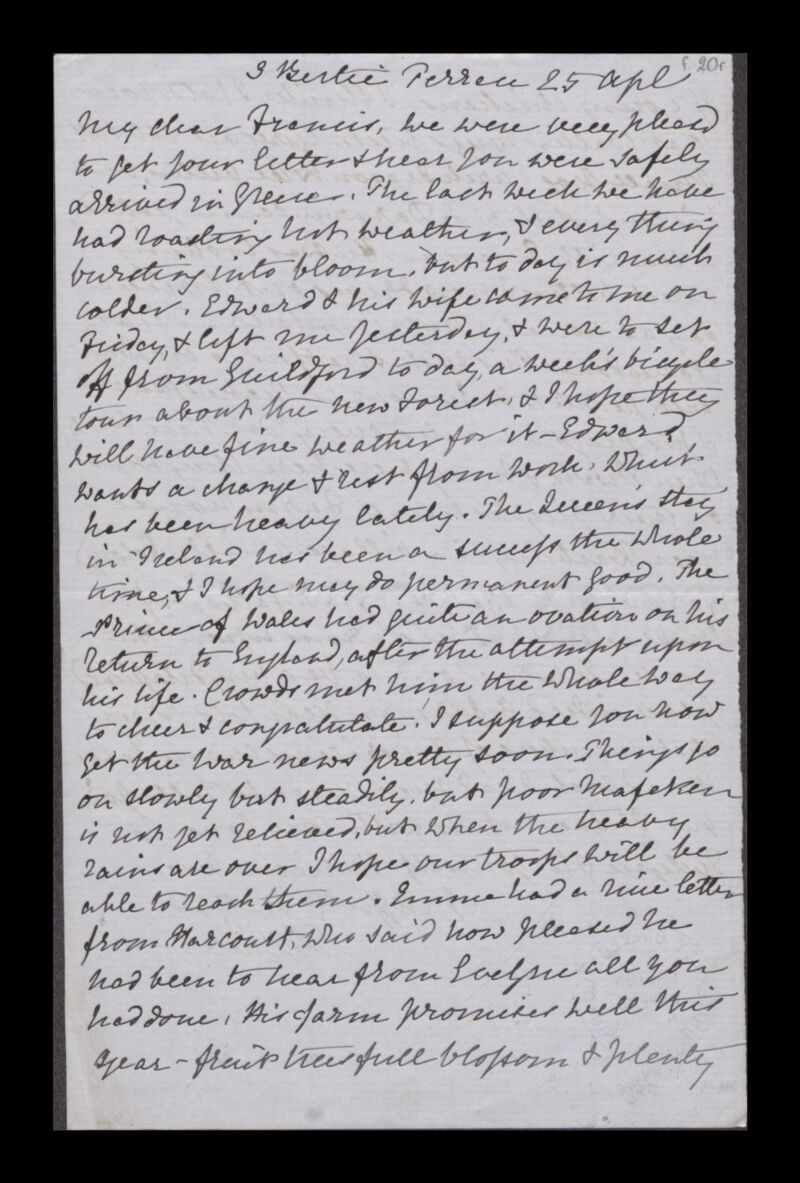 f. 20r
3 Bertie Terrace 25 Apl
My dear Francis, we were very pleasd
to get your letter & hear you were safely
arrived in Greece. The last week we have
had roasting hot weather, & every thing
bursting into bloom, but to day is much
colder. Edward & his wife came to me on
Friday, & left me yesterday, & were to set
off from Guildford to day, a week's bicycle
tour about the New Forest, & I hope they
will have fine weather for it - Edward
wants a change & rest from work, which
has been heavy lately. The Queen's stay
in Ireland has been a success the whole
time, & I hope may do permanent good. The
Prince of Wales had quite an ovation on his
return to England, after the attempt upon
his life. Crowds met him the whole way
to cheer & congratulate. I suppose you now
get the war news pretty soon. Things go
on slowly but steadily, but poor Mafeken
is not yet relieved, but when the heavy
rains are over I hope our troops will be
able to reach them. Emma had a nice letter
from Harcourt, who said how pleased he
had been to hear from Evelyne all you
had done, His farm promises well this
year - fruit trees full blossom & plenty